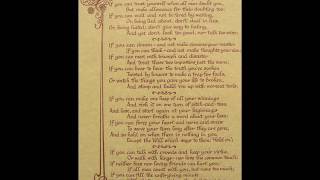 If you can trust yourself when all men doubt you,
But make allowance for their doubting too:
If you can wait and not be tired by waiting,
Or, being lied about, don't deal in lies,
Or being hated, don't give way to hating,
And yet don't look too good, nor talk too wise;
If you can dream - and not make dreams your master;
If you can think - and not make thoughts your aim,
If you can meet with triumph and disaster
And treat those two impostors just the same;
If you can bear to hear the truth you've spoken
Twisted by knaves to make a trap for fools,
Or watch the things you gave your life to broken,
And stoop and build 'em up with worn-out tools;
If you can make one heap of all your winnings
And risk it on one turn of pitch-and-toss,
And lose, and start again at your beginnings
And never breathe a word about your loss:
If you can force your heart and nerve and sinew
To serve your turn long after they are gone,
And so hold on when there is nothing in you,
Except the Will which says to them; "Hold on";
If you can talk with crowds and keep your virtue,
Or walk with kings - nor lose the common touch;
If neither foes nor loving friends can hurt you;
If all men count with you, but none too much;
If you can fill the unforgiving minute